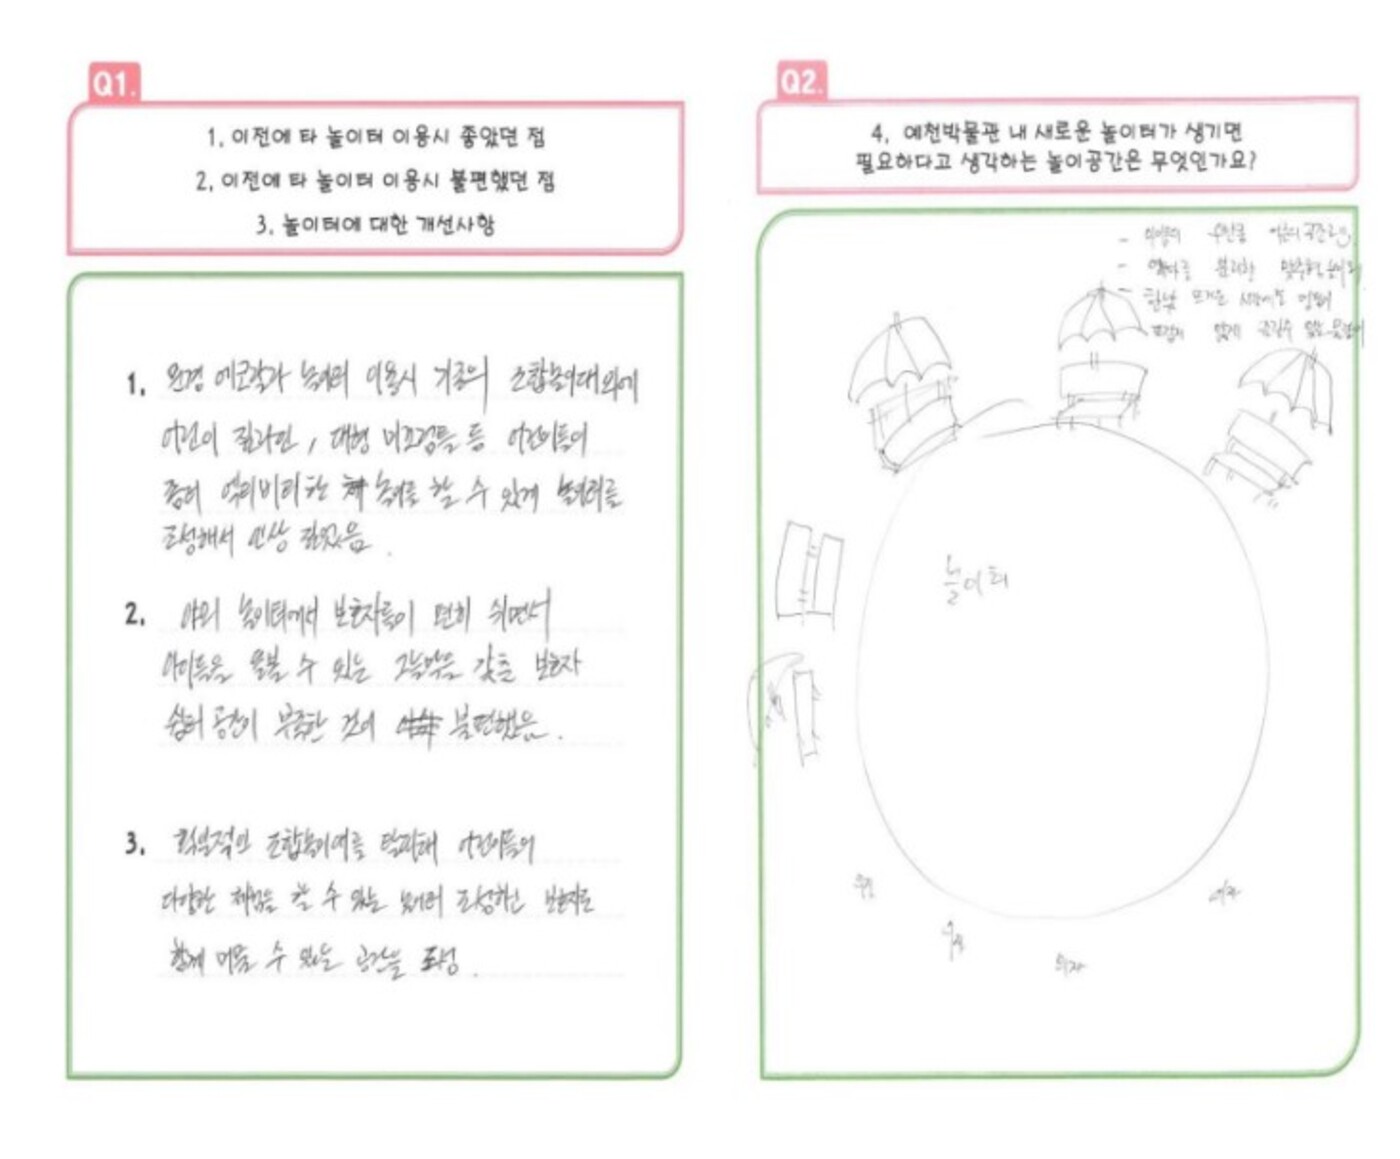 Q1.
1. 이전에 타 놀이터 이용시 좋았던 점
2. 이전에 타 놀이터 이용시 불편했던 점
3. 놀이터에 대한 개선사항
1. 문경 에코랄라 놀이터 이용시 기존의 조합놀이대 외에
어린이 짚라인, 대형 미끄럼틀 등 어린이들이
좀더 액티비티한 놀이를 할 수 있게 놀이터를
조성해서 인상 깊었음.
2. 야외 놀이터에서 보호자들이 편히 쉬면서
아이들을 돌볼 수 있는 그늘막을 갖춘 보호자
쉼터 공간이 부족한 것이 불편했음.
3. 획일적인 조합놀이대를 탈피해 어린이들의
다양한 체험을 할 수 있는 놀이터 조성하고 보호자도
함께 머물 수 있는 공간을 조성.
Q2.
4. 예천박물관 내 새로운 놀이터가 생기면
필요하다고 생각하는 놀이공간은 무엇인가요?
- 어린이
- 분리한 맞춤형
- 한낮 뜨거운 시간에도
놀이터
의자